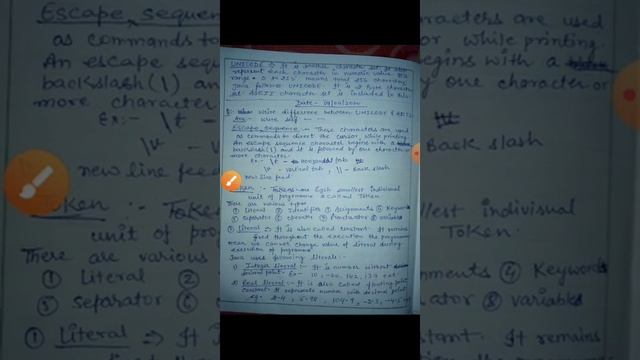 UNICODE :- It is another character set. It also
represent each character in numeric value. Its
range 0 to 255 means total 256 characters.
Java follows UNICODE. It is 2 byte character
set. ASCII character set is included in this.
Date:-
Q:- Write difference between UNICODE & ASCII
Ans:- Write self
Escape Sequence :- These characters are used
as commands to direct the cursor while printing.
An escape sequence character begins with a
backslash(\) and it is followed by one character or
more character.
Ex:- \t - tab
\v - vertical tab, \\ - Back slash
new line feed
Token :- Tokens Each smallest individual
unit of programme is called Token.
There are various types
① Literal ② Identifier ③ Assignments ④ Keywords
⑤ Separator ⑥ operator ⑦ Punctuator ⑧ variables
① Literal :- It is also called constant. It remains
fixed throughout the execution the programme
mean we cannot change value of literal during
execution of programme.
Java uses following literals:-
1) Integer literal :- It is number without
decimal point. Ex- 10, -20, 142, 179 etc.
2) Real literal :- It is also called floating point
constant. It represents number with decimal point
eg. 2.4, 5.98, 104.7, -2.3, -4.5
Escape sequence
as commands to
An escape se
backslash(\) an
more character
Ex:- \t -
\v -
new line feed
Token :- Token
unit of pro
There are various
① Literal ②
⑤ separator ⑥
① Literal :- It i
racters are used
or while printing.
egins with a
by one character or
Back slash
llest indivisual
Token.
nments ④ Keywords
uator ⑧ variables
It remains